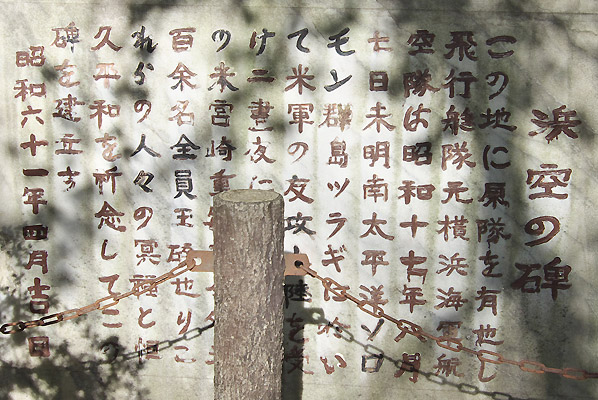 浜空の碑
この地に原隊を有せし
飛行艇隊元横浜海軍航
空隊は昭和十七年八月
七日未明南太平洋ソロ
モン群島ツラギにおい
て米軍の反攻上陸を受
け二晝夜に
の末宮崎重
百余名全員玉砕せりこ
れらの人々の冥福と恒
久平和を祈念してここ
碑を建立す
昭和六十一年四月吉日